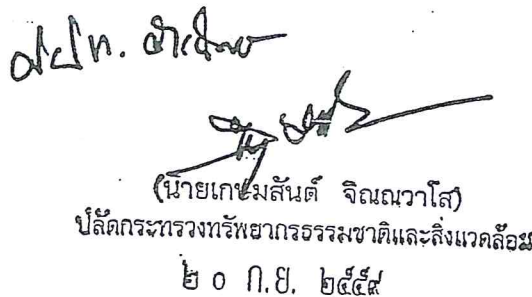 ศปท. ดำเนินการ
(นายเกษมสันต์ จิณณวาโส)
ปลัดกระทรวงทรัพยากรธรรมชาติและสิ่งแวดล้อม
๒๐ ก.ย. ๒๕๕๙